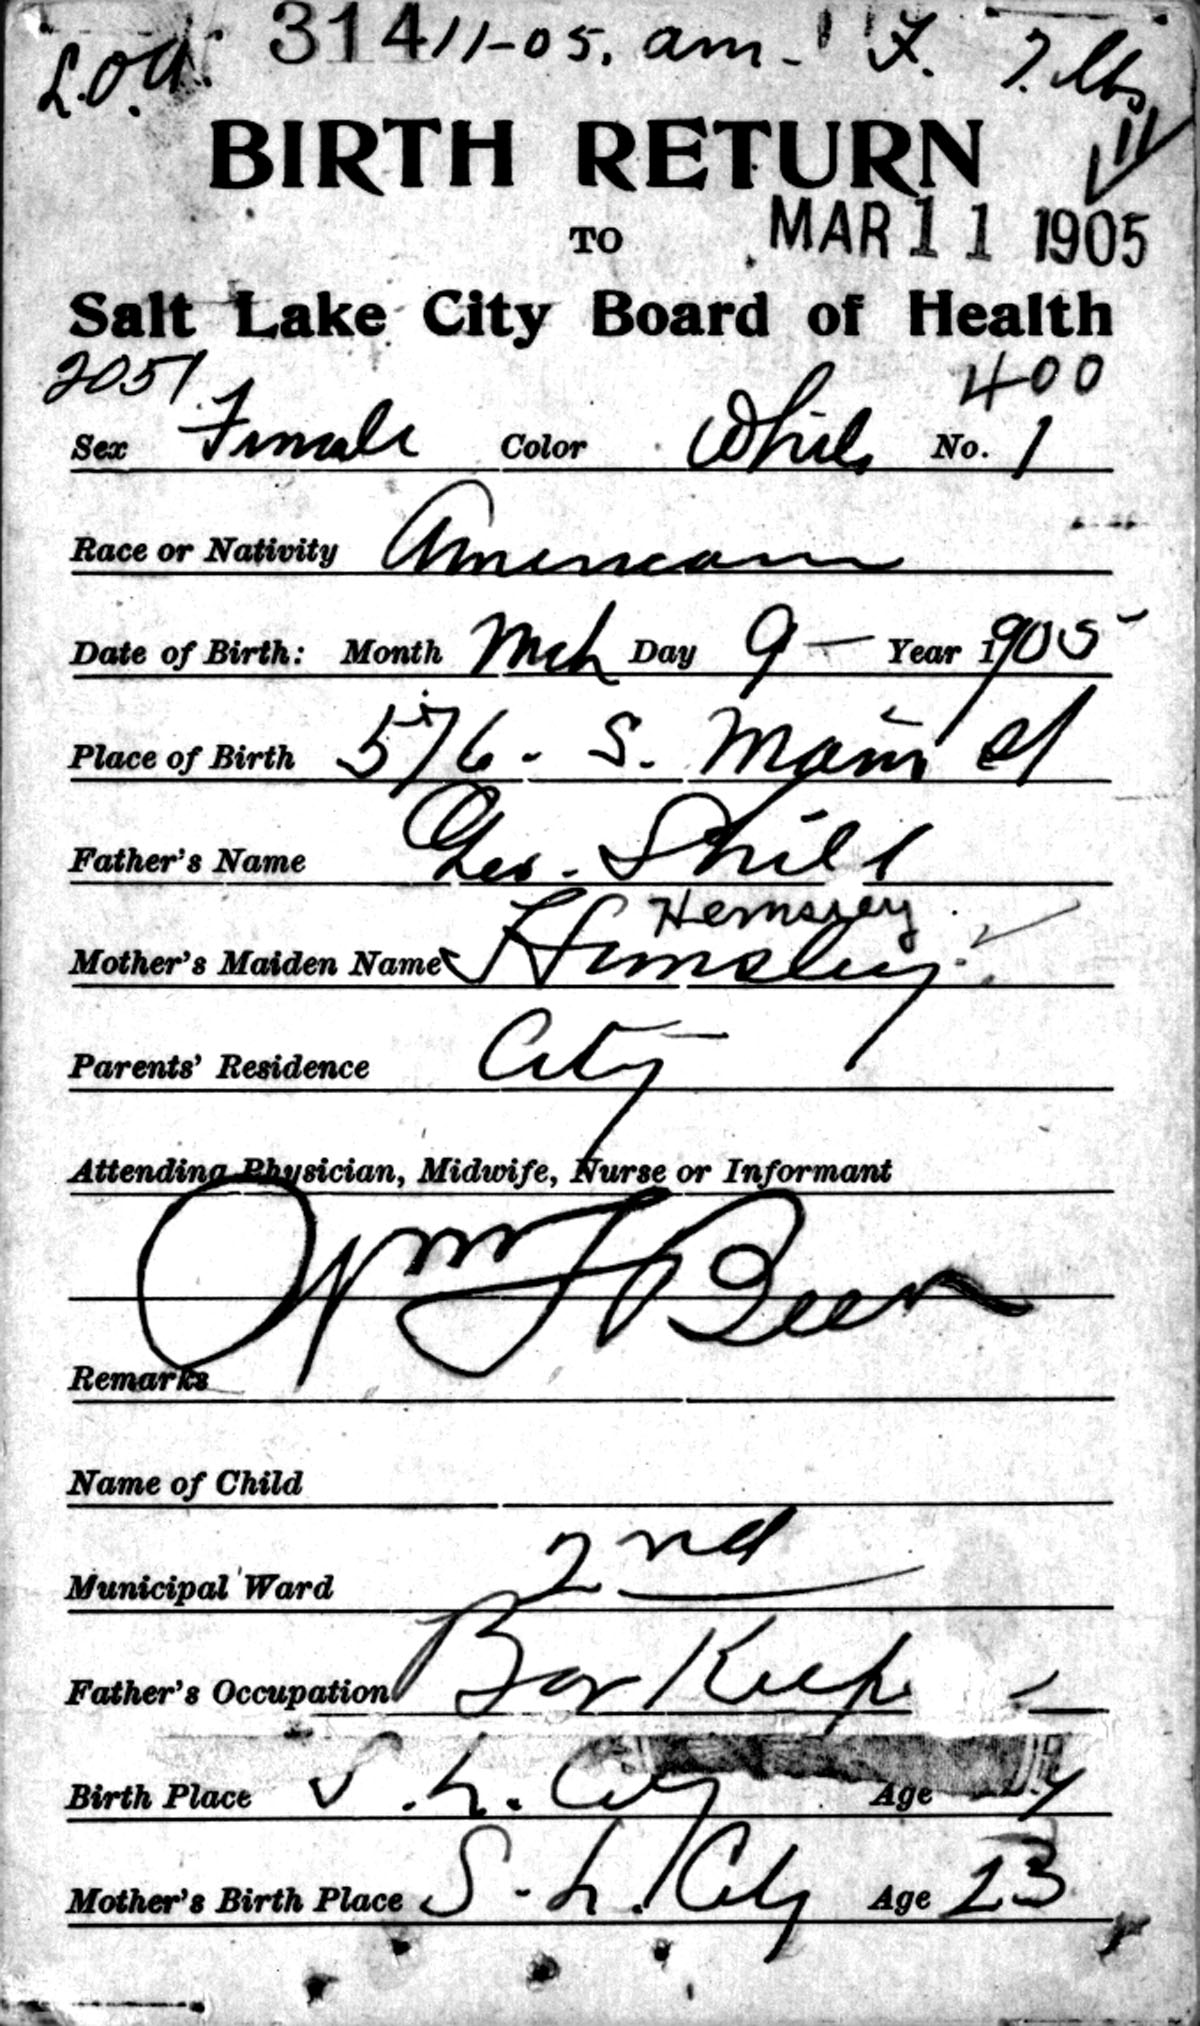 L.O.A. 314 11-05. am. F. 7. lbs
BIRTH RETURN
TO MAR 11 1905
Salt Lake City Board of Health
2051 400
Sex Female Color White No. 1
Race or Nativity American
Date of Birth: Month Mch Day 9 - Year 1905
Place of Birth 576. S. Main st
Father's Name Geo.
Hemsley
Mother's Maiden Name Hemsley
Parents' Residence City
Attending Physician, Midwife, Nurse or Informant
Wm F Beer
Remarks
Name of Child
Municipal Ward 2nd
Father's Occupation Bar Keep
Birth Place S. L. City Age
Mother's Birth Place S. L. City Age 23